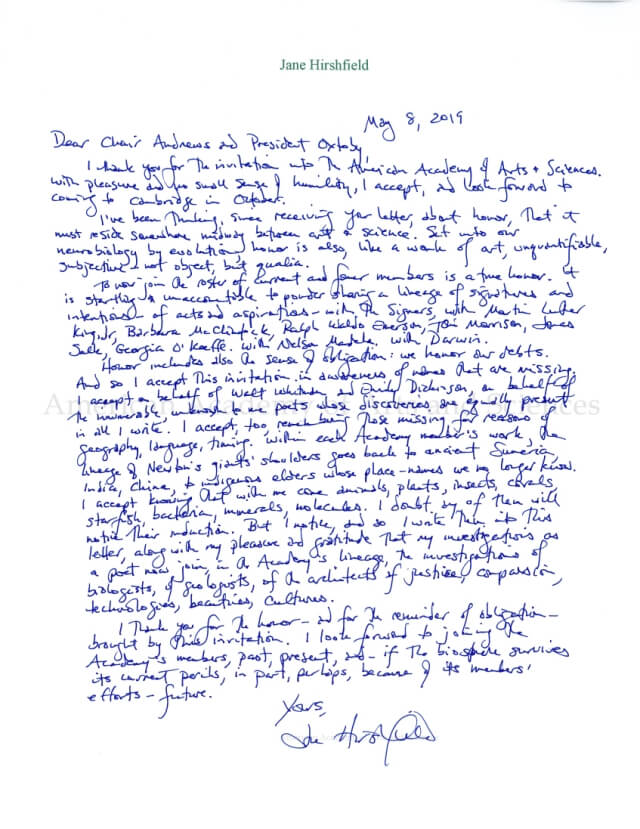 Jane Hirshfield
May 8, 2019
Dear Chair Andrews and President Oxtoby,
I thank you for the invitation into The American Academy of Arts + Sciences.
With pleasure and no small sense of humility, I accept, and look forward to
coming to Cambridge in October.
I've been thinking, since receiving your letter, about honor, that it
must reside somewhere midway between art & science. Set into our
neurobiology by evolution, honor is also, like a work of art, unquantifiable,
subjective – not object, but qualia.
To now join the roster of current and former members is a true honor. It
is startling & unaccountable to ponder sharing a lineage of signatures and
intentions – of acts and aspirations – with the Signers, with Martin Luther
King, Jr, Barbara McClintock, Ralph Waldo Emerson, Toni Morrison, Jonas
Salk, Georgia O'Keeffe. With Nelson Mandela. With Darwin.
Honor includes also the sense of obligation: we honor our debts.
And so I accept this invitation in awareness of names that are missing.
I accept on behalf of Walt Whitman and Emily Dickinson, on behalf of
the innumerable unknown to us poets whose discoveries are equally present
in all I write. I accept, too, remembering those missing for reasons of
geography, language, timing. Within each Academy member's work, the
lineage of Newton's giants' shoulders goes back to ancient Sumeria,
India, China, to indigenous elders whose place-names we no longer know.
I accept knowing that with me come animals, plants, insects, corals,
starfish, bacteria, minerals, molecules. I doubt any of them will
notice their induction. But I notice, and so I write them into this
letter, along with my pleasure and gratitude that my investigations as
a poet now join, in the Academy's lineage, the investigations of
biologists, of geologists, of the architects of justice, compassion,
technologies, beauties, cultures.
I thank you for the honor – and for the reminder of obligation –
brought by this invitation. I look forward to joining the
Academy's members, past, present, and – if the biosphere survives
its current perils, in part, perhaps, because of its members'
efforts – future.
Yours,
Jane Hirshfield